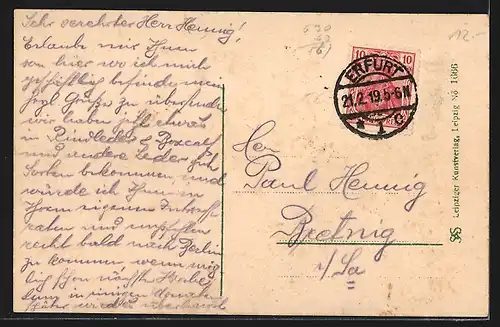 Sehr verehrter Herr Hennig!
Erlaube mir Ihnen
von hier wo ich mich
geschäftlich befinde mein
Grüße zu übersenden
wir haben jetzt etwas
in Rindleder & Boxcalf
und andere Leder
Sorten bekommen und
würde ich Ihnen in
Ihrem eigenen Interesse
raten und empfehlen
recht bald nach Berlin
zu kommen wenn mög-
lich schon nächste Woche
da in einigen Monaten
später wieder
10 10
ERFURT
21.2.19.5-6N
* 1 c
Herr
Paul Hennig
Bretnig
i/Sa
12.-
Leipziger Kunstverlag, Leipzig No 1366